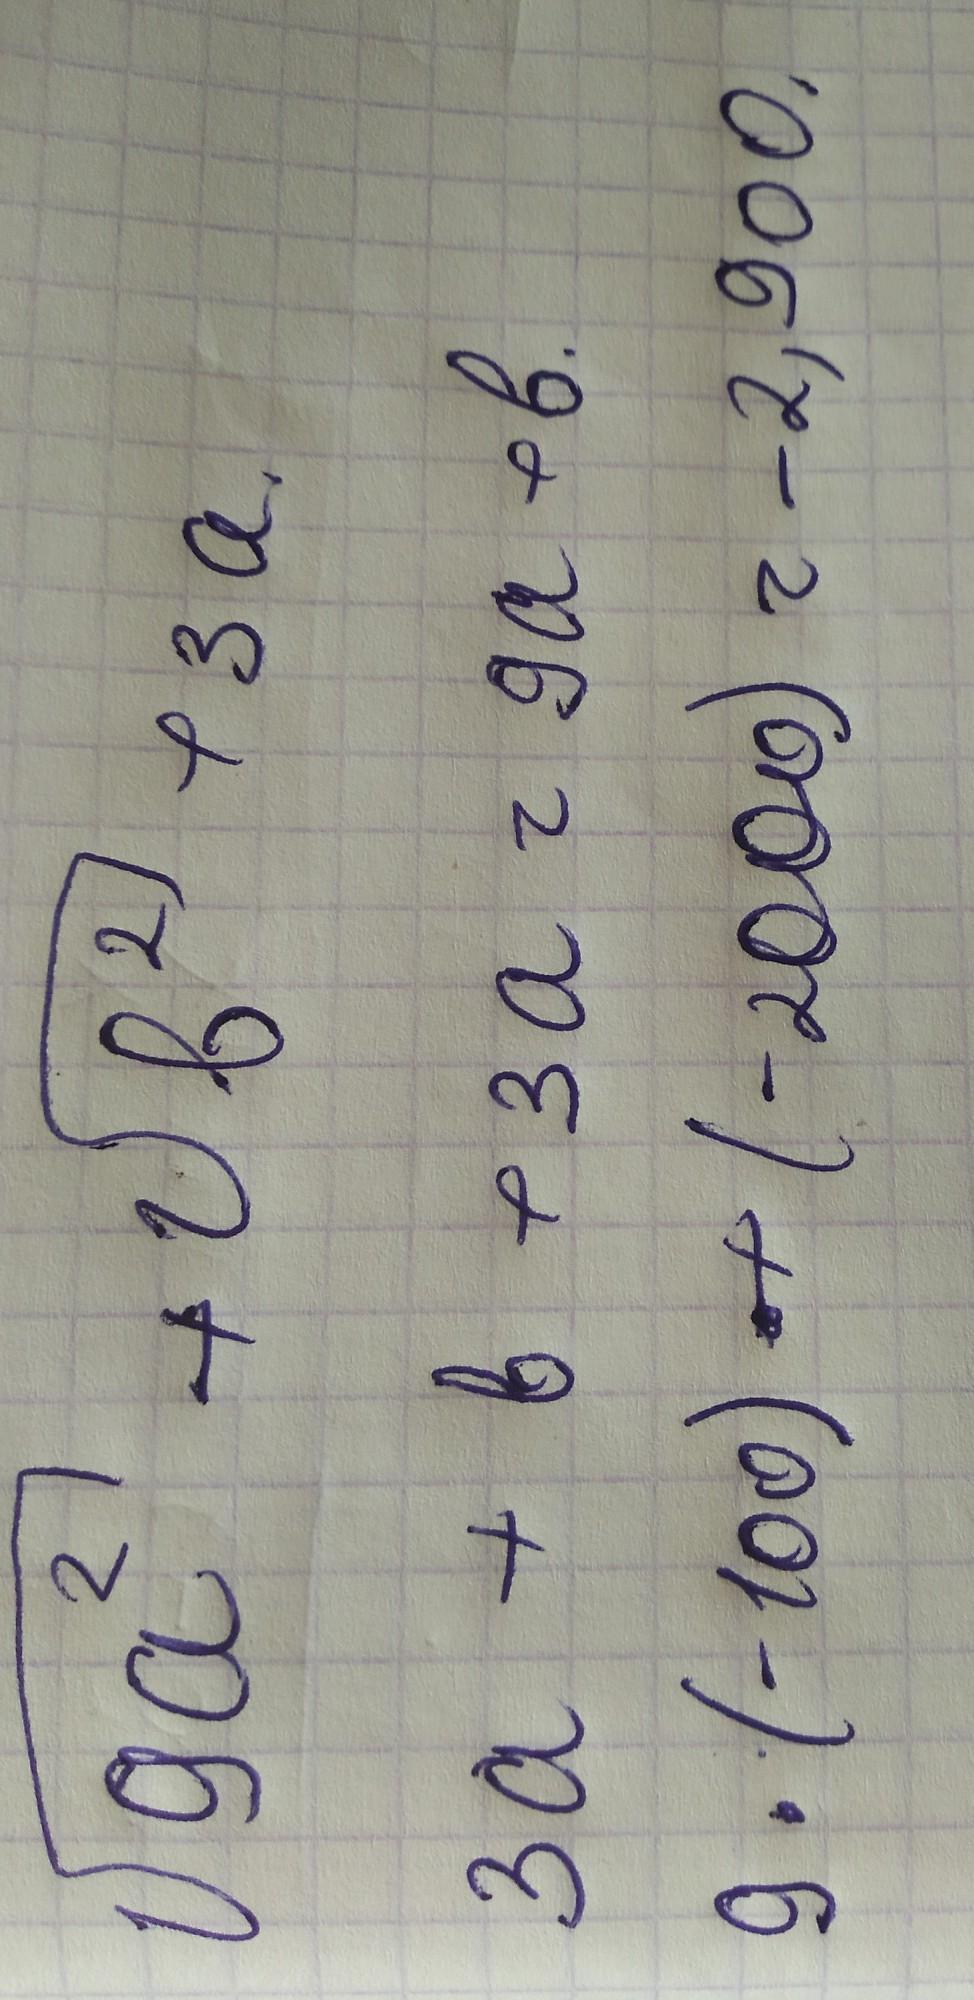 √9a² + √b² + 3a.
3a + b + 3a = 9a + b.
9·(-100) + (-2000) = -2,900.